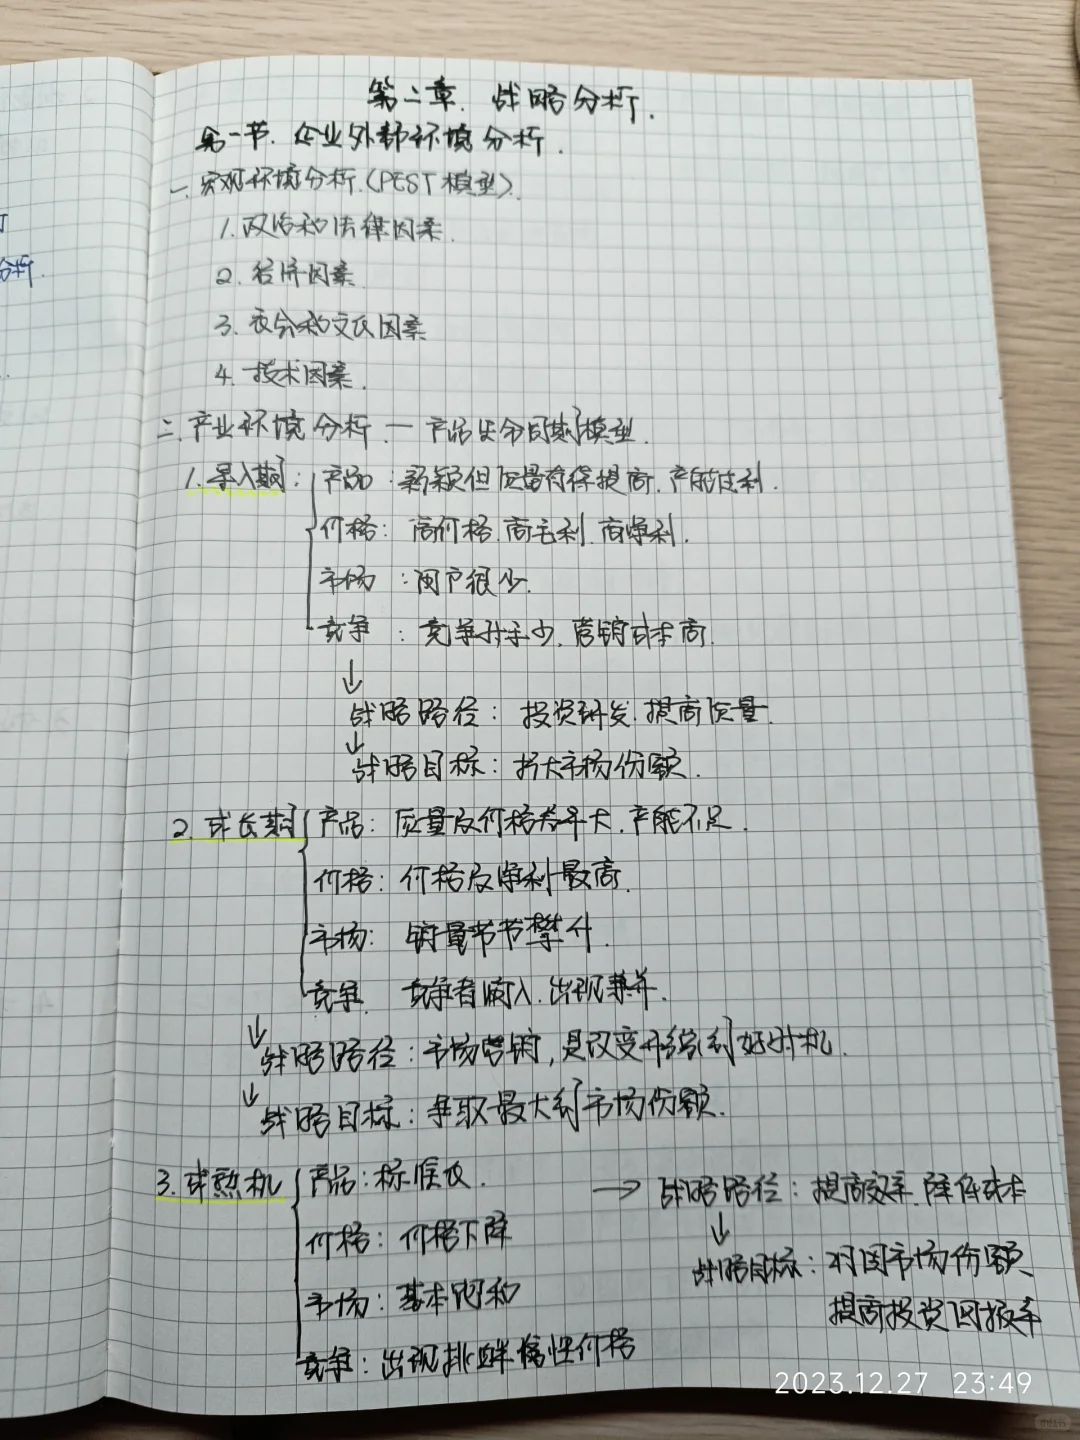 第二章. 战略分析.
第一节. 企业外部环境分析.
一. 宏观环境分析.(PEST模型).
1. 政治和法律因素.
2. 经济因素
3. 社会和文化因素
4. 技术因素.
二. 产业环境分析. — 产品生命周期模型.
1. 导入期: 产品: 新颖但质量有待提高. 产能过剩.
价格: 高价格. 高毛利. 高净利.
市场: 用户很少.
竞争: 竞争对手少. 营销成本高.
↓
战略路径: 投资研发. 提高质量.
↓
战略目标: 扩大市场份额.
2. 成长期 产品: 质量及价格差异大. 产能不足.
价格: 价格及净利最高.
市场: 销量节节攀升.
竞争 竞争者涌入. 出现兼并.
↓ 战略路径: 市场营销, 是改变形象的好时机.
↓ 战略目标: 争取最大的市场份额.
3. 成熟机 产品: 标准化.
价格: 价格下降
市场: 基本饱和
竞争: 出现挑衅性价格
→ 战略路径: 提高效率. 降低成本
↓
战略目标: 巩固市场份额
提高投资回报率
分析.
2023.12.27 23:49